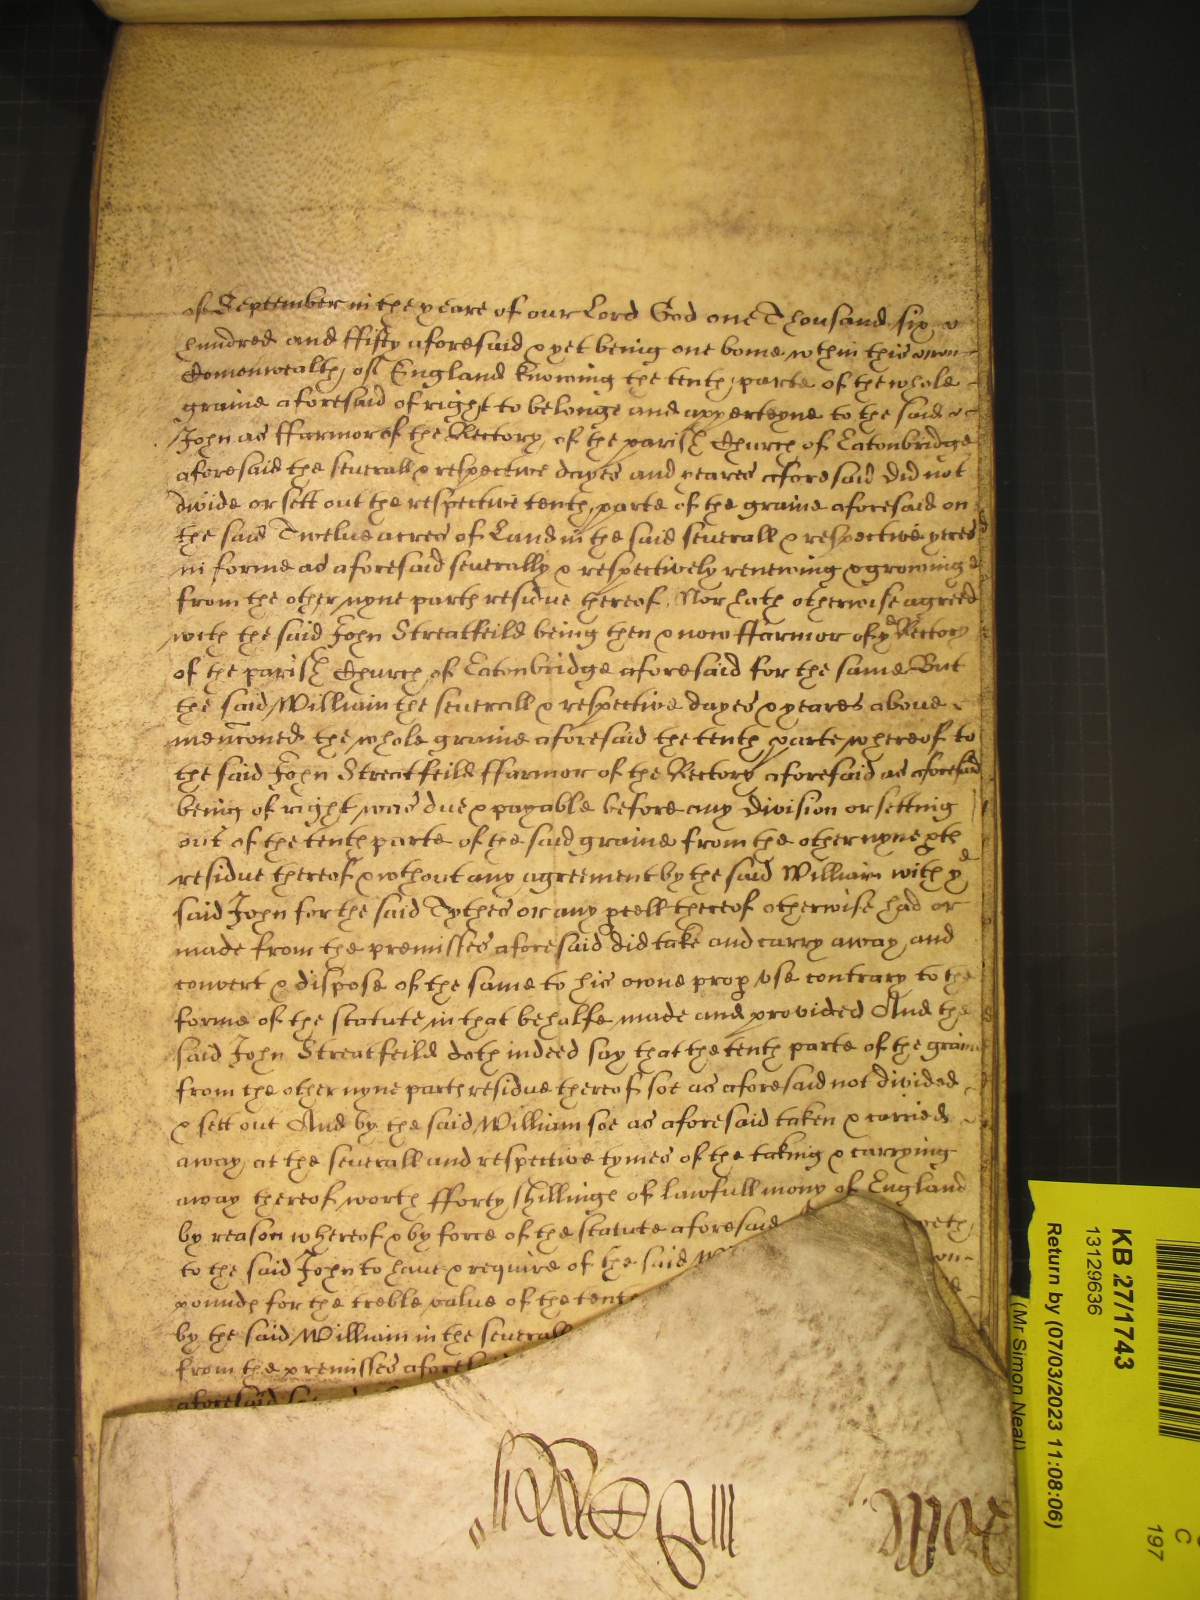 of September in the yeare of our Lord God one Thousand six
hundred and ffifty aforesaid & yet being one borne wthin this
Comonwealth of England knowing the tenth parte of the whole
graine aforesaid of right to belonge and apperteyne to the said
John as ffarmor of the Rectory of the parish Church of Eatonbridge
aforesaid the severall & respective dayes and yeares aforesaid did not
divide or sett out the respective tenth parte of the graine aforesaid on
the said Twelve acres of Land in the said severall & respective yeres
in forme as aforesaid severally & respectively renewing & growing
from the other nyne parth residue thereof. Nor hath otherwise agreed
with the said John Streatfeild being then & now ffarmor of ye Rectory
of the parish Church of Eatonbridge aforesaid for the same But
the said William the severall & respective dayes & yeares above
menconed the whole graine aforesaid the tenth parte whereof to
the said John Streatfeild ffarmor of the Rectory aforesaid as aforesaid
being of right was due & payable before any division or setting
out of the tenth parte of the said graine from the other nyne pth
residue thereof & without any agreement by the said William with ye
said John for the said Tythes or any pcell thereof otherwise had or
made from the premisses aforesaid did take and carry away and
convert & dispose of the same to his owne prop use contrary to the
forme of the statute in that behalfe made and provided And the
said John Streatfeild doth indeed say that the tenth parte of the graine
from the other nyne parth residue thereof soe as aforesaid not divided
& sett out And by the said William soe as aforesaid taken & carried
away at the severall and respective tymes of the taking & carrying
away thereof worth fforty shillinge of lawfull mony of England
by reason whereof & by force of the statute aforesaid
to the said John to have & require of the said
pounde for the treble value of the tenth
by the said William in the severall
from the premisses aforesaid
aforesaid
Rolle
KB 27/1743
13129636
Return by (07/03/2023 11:08:06)
(Mr Simon Neal)
C
197